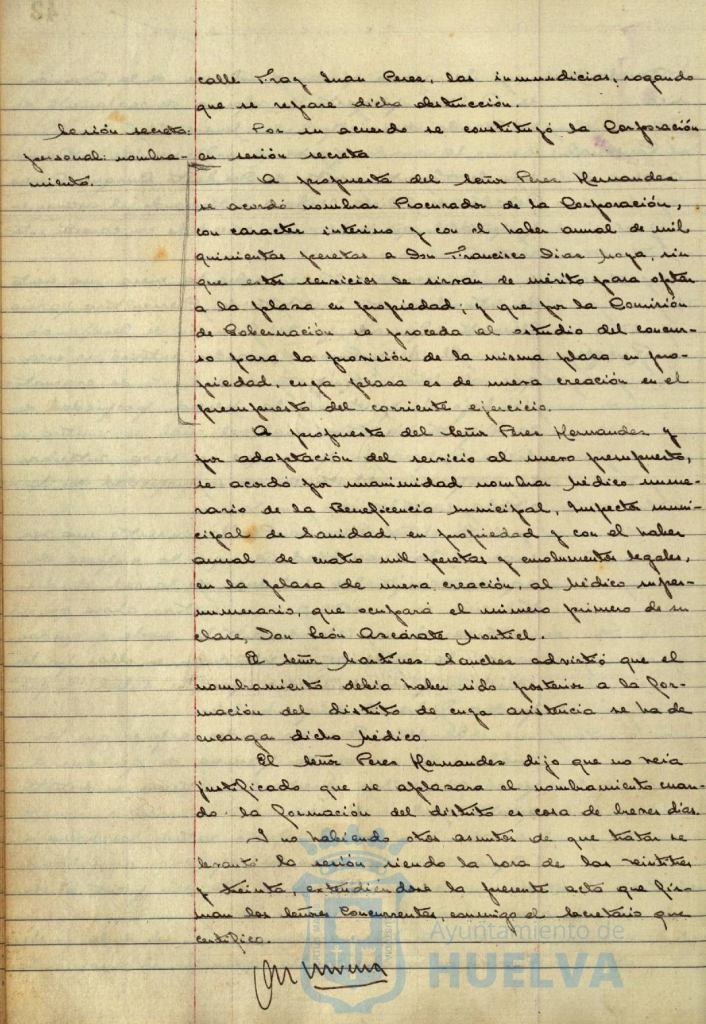 calle Fray Juan Perez, las inmundicias, rogando
que se repare dicha obstrucción.
Sesión secreta:
personal: nombra-
miento.
Por su acuerdo se constituyó la Corporación
en sesión secreta
A propuesta del Señor Perez Hernandez
se acordó nombrar Procurador de la Corporación,
con caracter interino y con el haber anual de mil
quinientas pesetas a Don Francisco Diaz Moya, sin
que estos servicios de sirvan de mérito para optar
a la plaza en propiedad; y que por la Comisión
de Gobernación se proceda al estudio del concur-
so para la provisión de la misma plaza en pro-
piedad, cuya plaza es de nueva creación en el
presupuesto del corriente ejercicio.
A propuesta del Señor Perez Hernandez y
por adaptación del servicio al nuevo presupuesto,
se acordó por unanimidad nombrar Médico nume-
rario de la Beneficencia municipal, Inspector muni-
cipal de Sanidad, en propiedad y con el haber
anual de cuatro mil pesetas y emolumentos legales,
en la plaza de nueva creación, al Médico super-
numerario, que ocupará el número primero de su
clase, Don León Azcárate Montiel.
El Señor Martinez Sanchez advirtió que el
nombramiento debia haber sido posterior a la for-
mación del distrito de cuya asistencia se ha de
encargar dicho Médico.
El Señor Perez Hernandez dijo que no veia
justificado que se aplazara el nombramiento cuan-
do la formación del distrito es cosa de breves dias.
Y no habiendo otros asuntos de que tratar se
levantó la sesión siendo la hora de las veintitres
y treinta, extendiéndose la presente acta que fir-
man los Señores Concurrentes, conmigo el Secretario que
certifico.
Ayuntamiento de
HUELVA